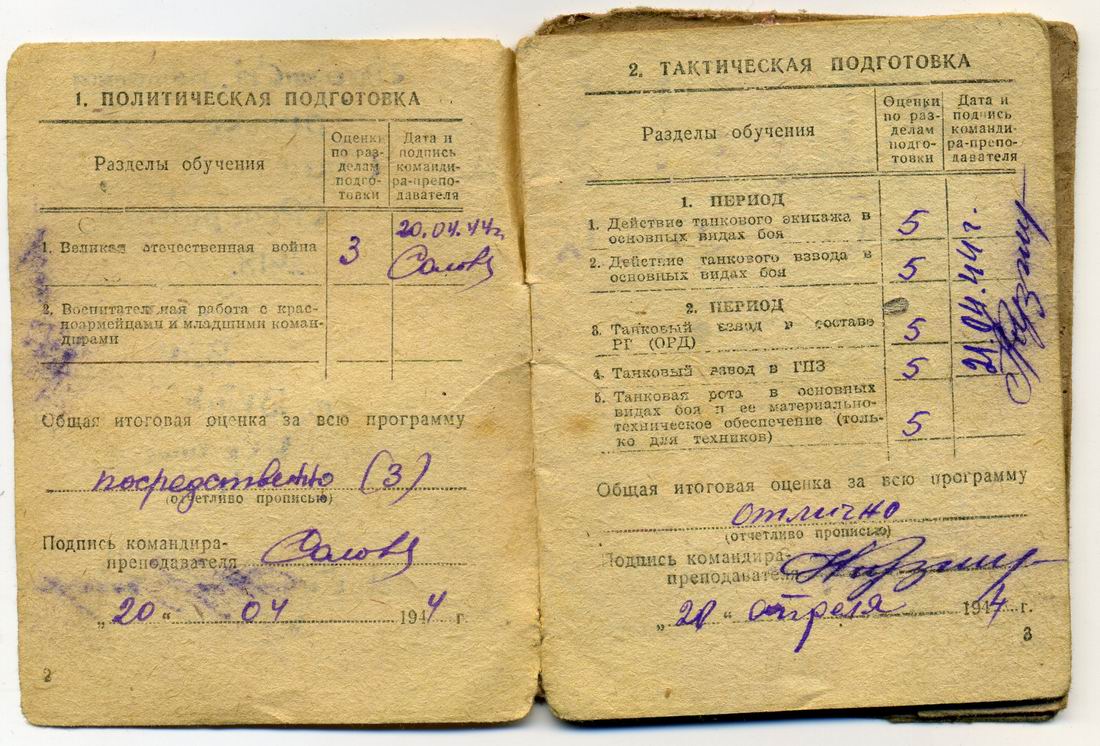 1. ПОЛИТИЧЕСКАЯ ПОДГОТОВКА
Разделы обучения
Оценки
по раз-
делам
подго-
товки
Дата и
подпись
команди-
ра-препо-
давателя
1. Великая отечественная война
3
20.04.44г.
2. Воспитательная работа с крас-
ноармейцами и младшими коман-
дирами
Общая итоговая оценка за всю программу
посредственно (3)
(отчетливо прописью)
Подпись командира-
преподавателя
„20“ 04 1944 г.
2
2. ТАКТИЧЕСКАЯ ПОДГОТОВКА
Разделы обучения
Оценки
по раз-
делам
подго-
товки
Дата и
подпись
команди-
ра-препо-
давателя
1. ПЕРИОД
1. Действие танкового экипажа в
основных видах боя
5
2. Действие танкового взвода в
основных видах боя
5
2. ПЕРИОД
3. Танковый взвод в составе
РГ (ОРД)
5
4. Танковый взвод в ГПЗ
5
5. Танковая рота в основных
видах боя и ее материально-
техническое обеспечение (толь-
ко для техников)
5
21.04.44г.
Общая итоговая оценка за всю программу
отлично
(отчетливо прописью)
Подпись командира-
преподавателя
апреля 1944 г.
3